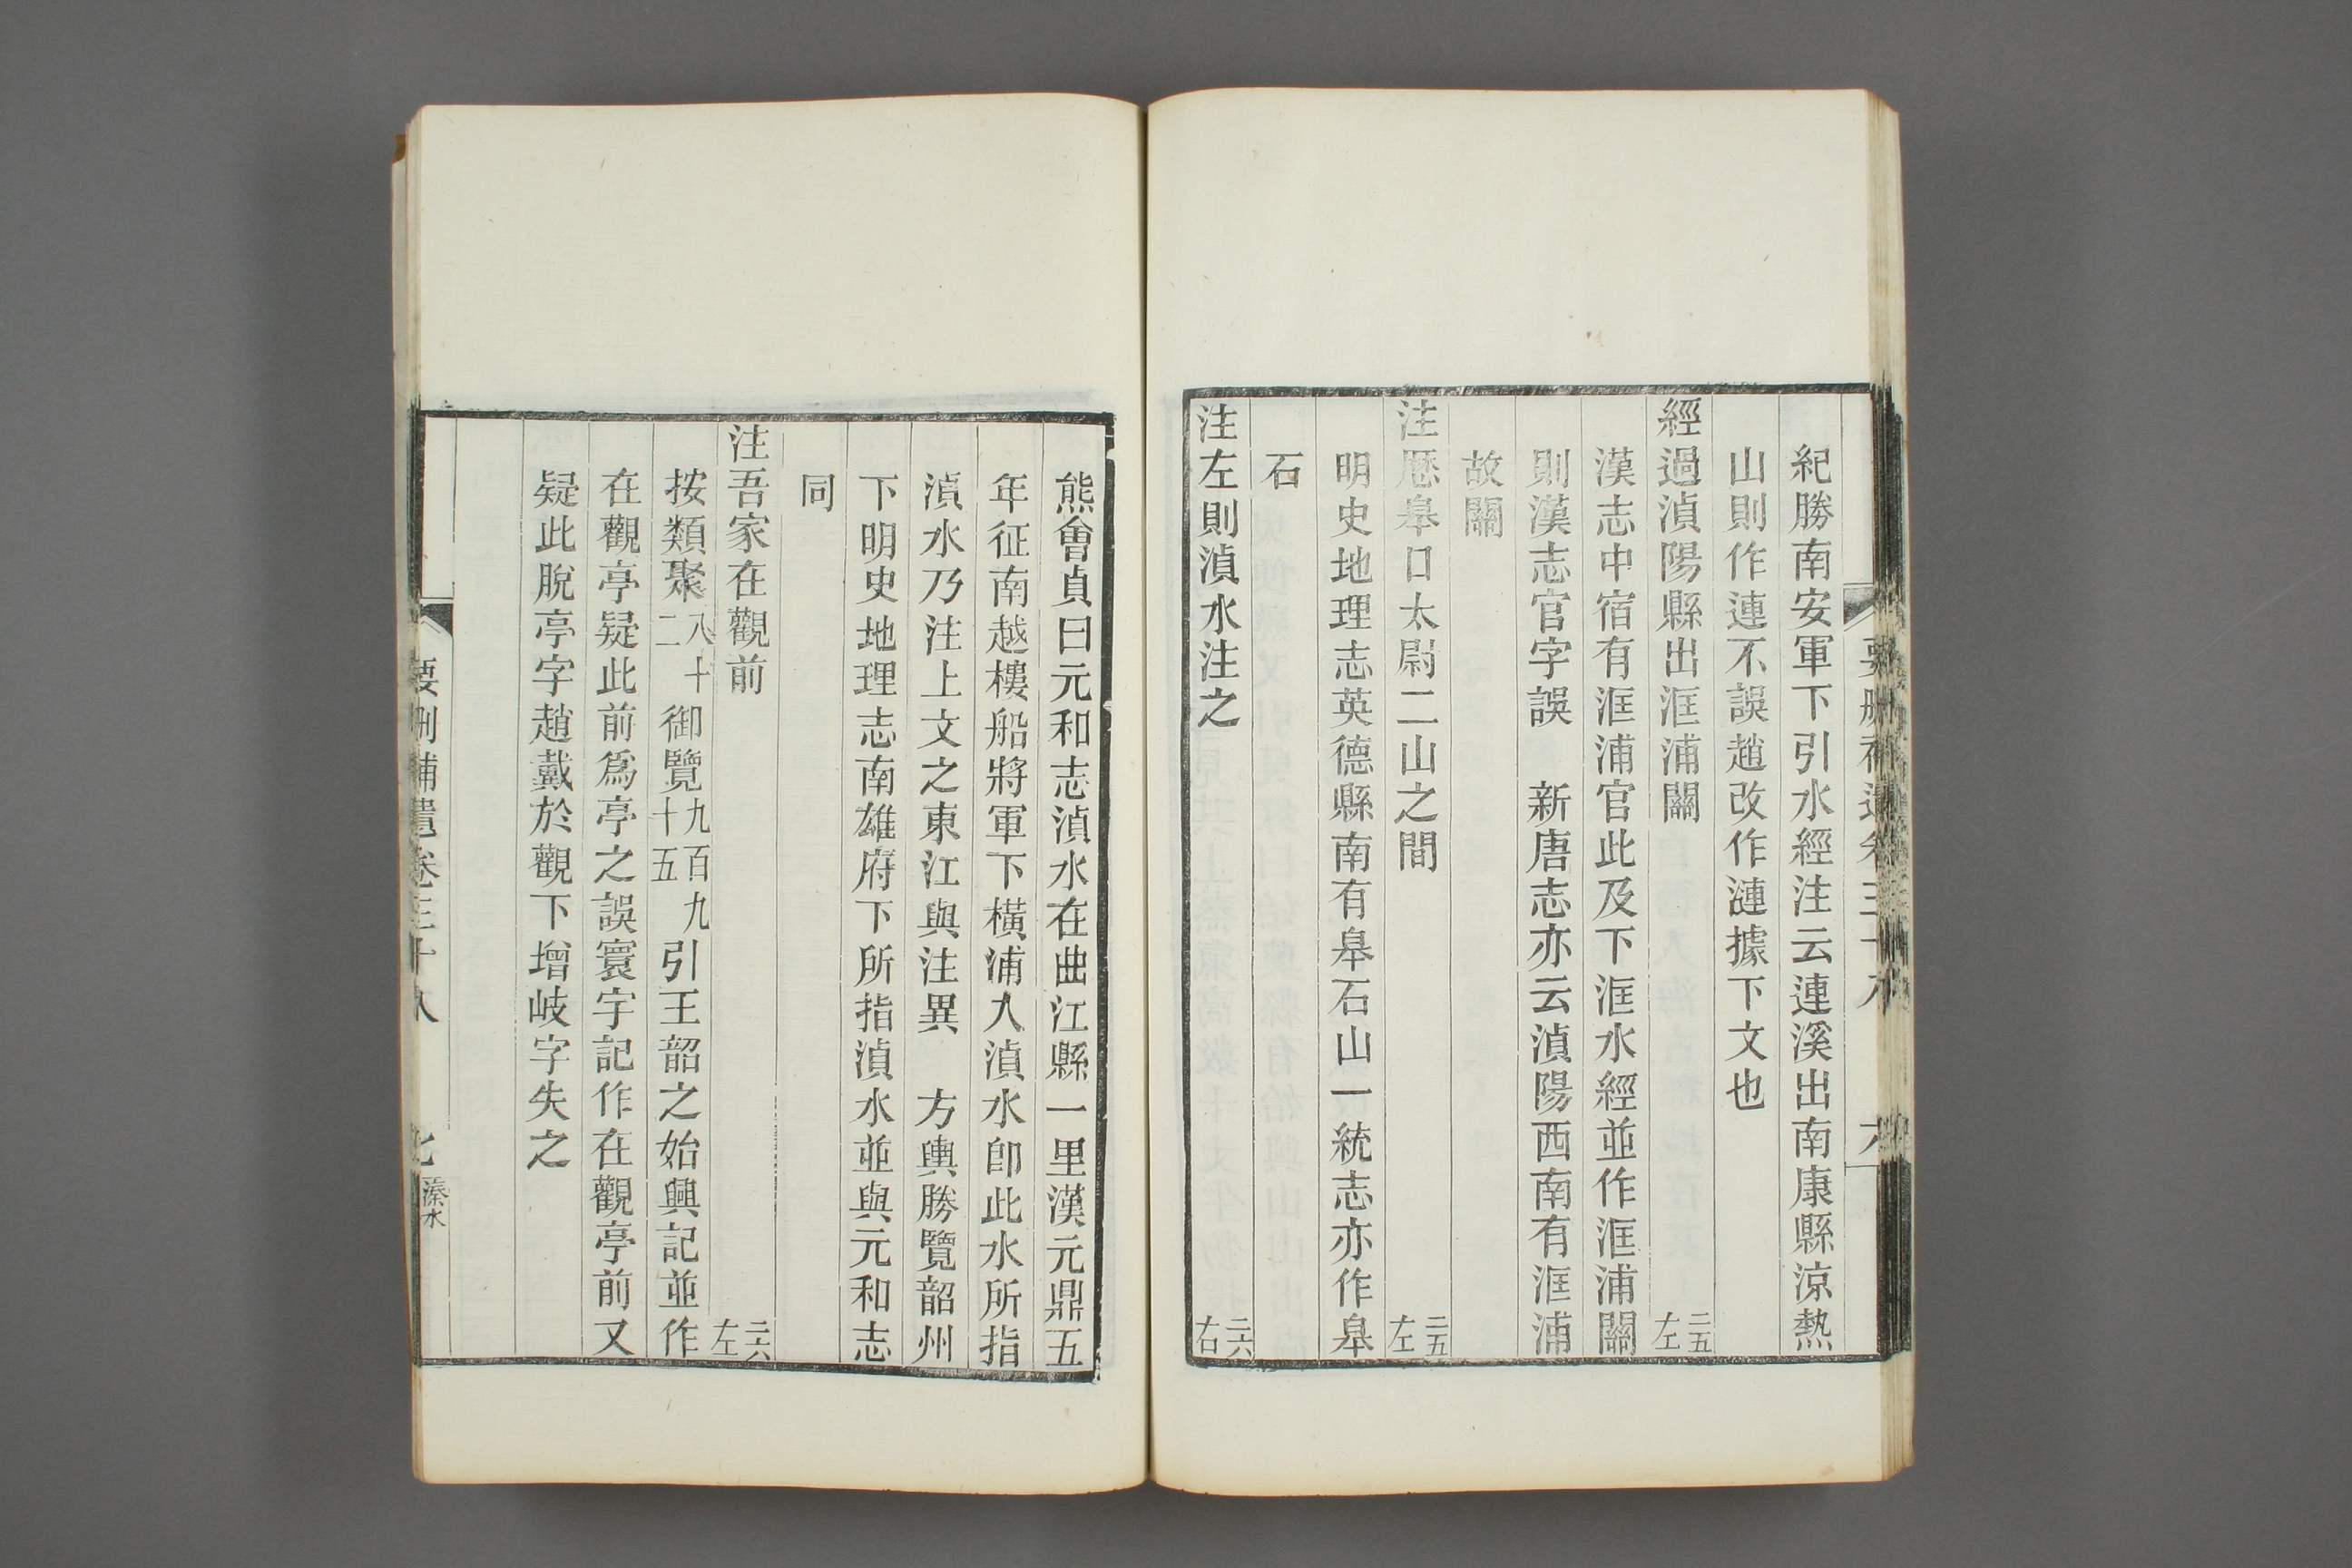 紀勝南安軍下引水經注云連溪出南康縣涼熱
山則作連不誤趙改作漣據下文也
經過湞陽縣出洭浦關二五左
漢志中宿有洭浦官此及下洭水經並作洭浦關
則漢志官字誤　新唐志亦云湞陽西南有洭浦
故關
注歷皋口太尉二山之間二五左
明史地理志英德縣南有皋石山一統志亦作皋
石
注左則湞水注之二六右
熊會貞曰元和志湞水在曲江縣一里漢元鼎五
年征南越樓船將軍下橫浦入湞水卽此水所指
湞水乃注上文之東江與注異　方輿勝覽韶州
下明史地理志南雄府下所指湞水並與元和志
同
注吾家在觀前二六左
按類聚八十二御覽九百九十五引王韶之始興記並作
在觀亭疑此前爲亭之誤寰宇記作在觀亭前又
疑此脫亭字趙戴於觀下增岐字失之
要刪補遺卷三十八　溱水